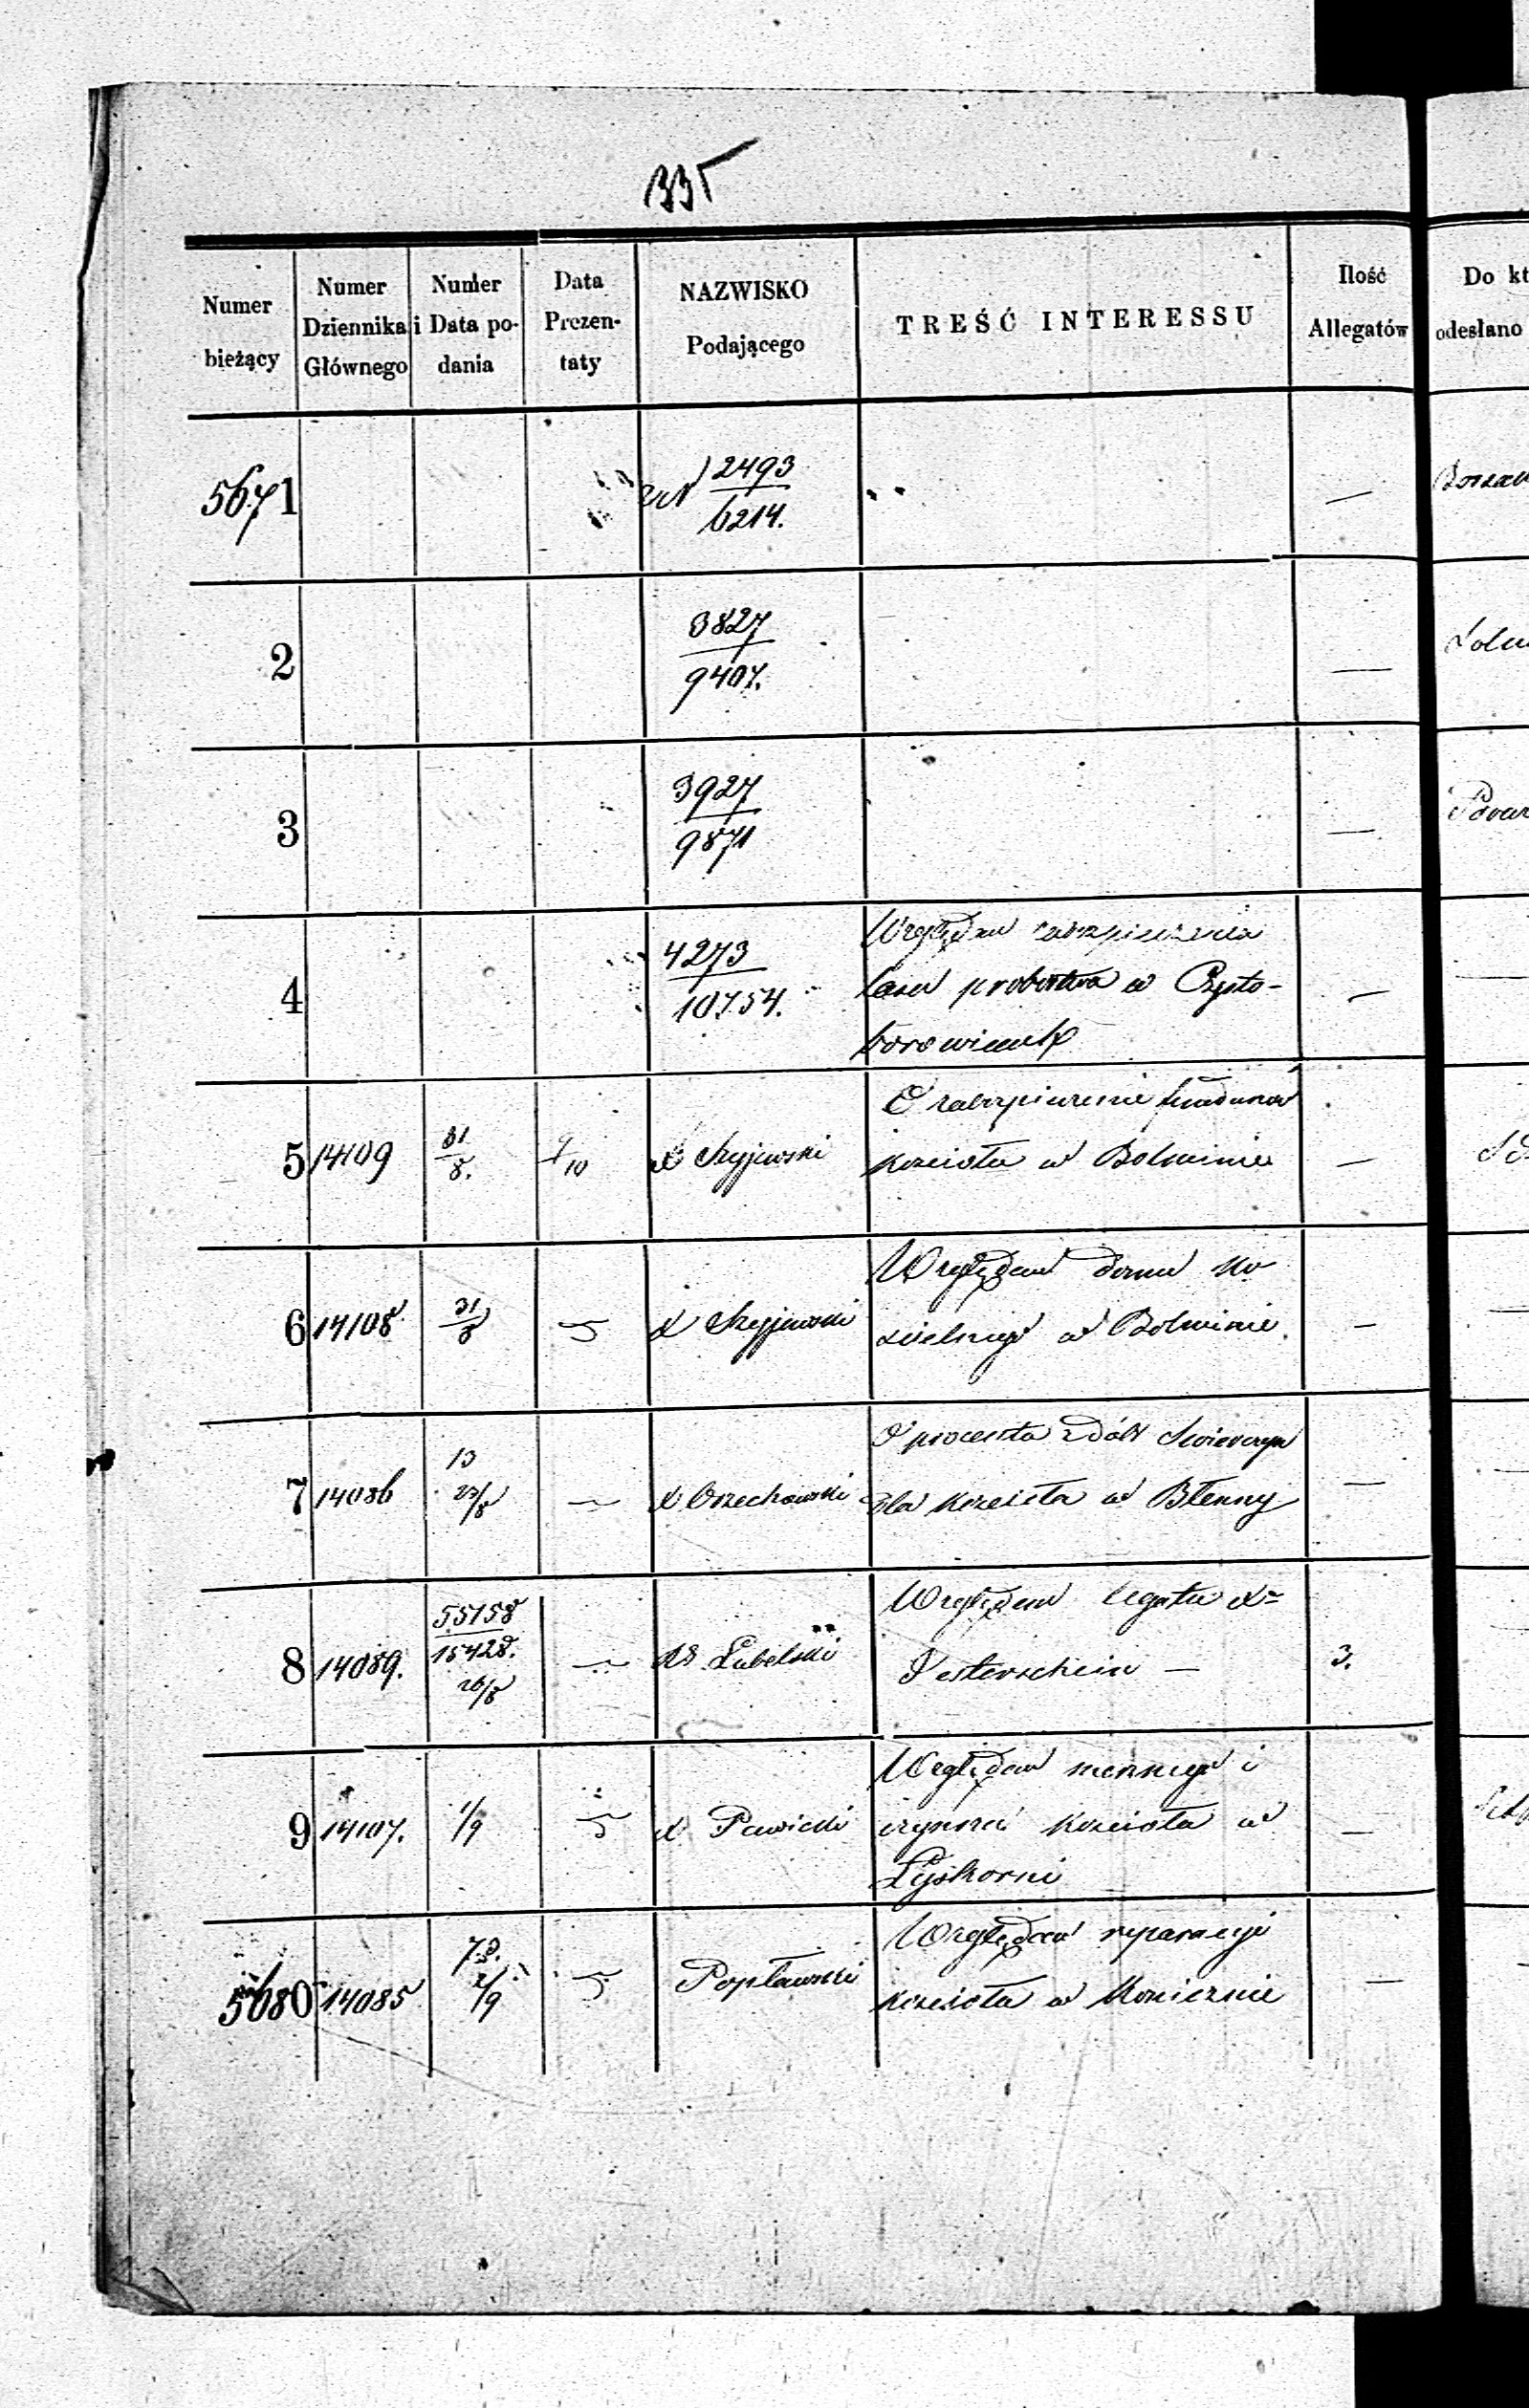 335
Numer bieżący
Numer Dziennika Głównego
Numer i Data podania
Data Prezentaty
NAZWISKO Podającego
TREŚĆ INTERESSU
Ilość Allegatów
Do kt
odesłano
5671
2493
6214.
—
2
3827
9407.
—
3
3927
9871
—
4
4273
10754.
Względem zabezpieczenia
lasu probostwa w
—
5 14109 31/8. 9/10 X Szyjewski
O zabezpieczenie funduszów
kościoła w Bolminie
—
6 14108 31/8 X Szyjewski
Względem domu ko
ścielnego w Bolminie
—
7 14086 13 23/8 X Orzechowski
O procenta z dóbr Swierczyn
dla kościoła w Błenny
—
8 14089. 55158
15428.
26/8
Lubelski
Względem legatu X
Festerschein —
3.
9 14107. 1/9 X
Względem mesznego i
czynszu kościoła w
Łyskorni
—
5680 14085 73. 2/9 Popławski
Względem reparacyi
kościoła w Koniecznie
—